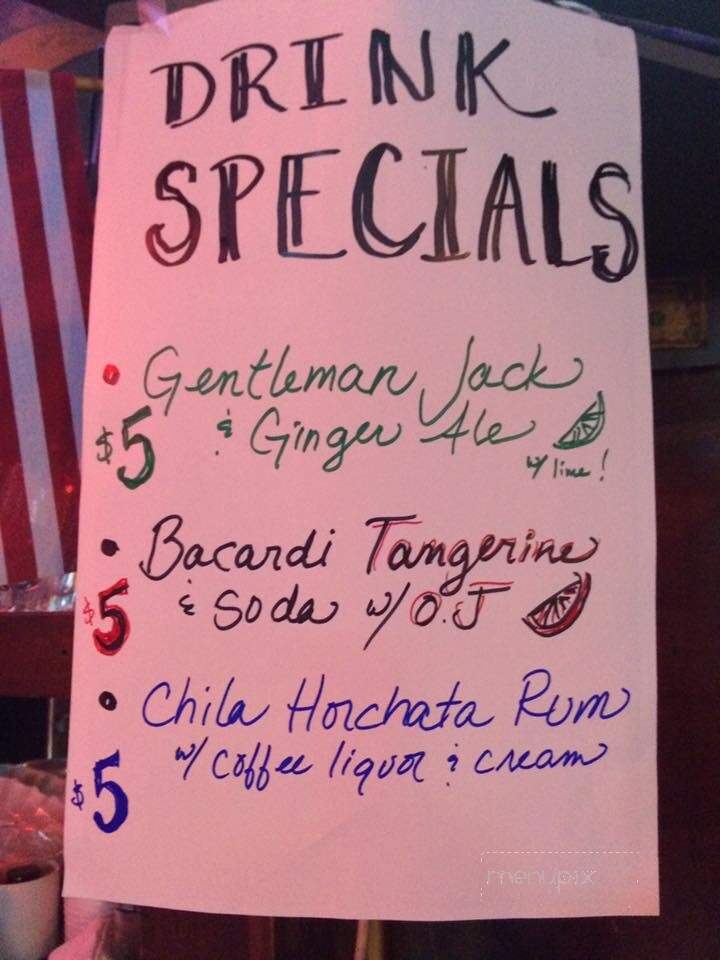 DRINK
SPECIALS
• Gentleman Jack
$5 & Ginger Ale
w/ lime!
• Bacardi Tangerine
$5 & Soda w/ O.J
• Chila Horchata Rum
w/ coffee liquor & cream
$5
menupix